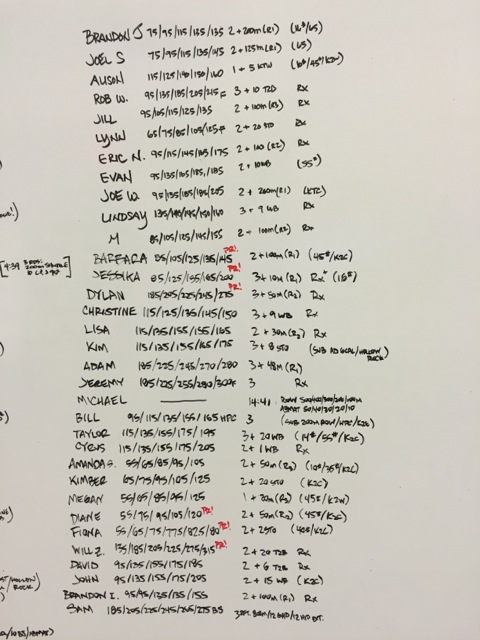 BRANDON J 75/95/115/135/135 2+200m(R1) (16#/65)
JOEL S 75/95/115/135/145 2+125m(R1) (65)
ALISON 115/125/140/150/160 1+5 KTW
ROB W. 95/135/185/205/215F 3+10 T2D Rx
JILL 95/105/115/125/135 2+100m(R3) Rx
LYNN 65/75/85/105/125F 2+20 STO Rx
ERIC N. 95/115/145/165/175 2+100(R2) Rx
EVAN 95/135/165/185/185 2+10WB (55#)
JOE W. 95/135/185/185/205 2+200m(R1) (KTC)
LINDSAY 135/140/145/150/160 3+9 WB Rx
M 85/105/125/145/155 2+100m(R3) Rx
[4:39
BARBARA 85/105/125/135/145 PR! 2+100m(R1) (45#/K2C)
JESSIKA 85/125/155/165/200 PR! 3+10m(R1) Rx+ (18#)
DYLAN 185/205/225/245/275 PR! 3+50m(R2) Rx
CHRISTINE 115/125/135/145/150 3+9 WB Rx
LISA 115/135/155/155/165 2+30m(R2) Rx
KIM 115/135/155/165/175 3+8 STO (SUB AD GCAL/HOLLOW ROCK)
ADAM 185/225/245/270/280 3+48m(R1)
JEREMY 185/225/255/280/300F 3 Rx
MICHAEL —— 14:41 ROW 500/400/300/200/100M
ABMAT 50/40/30/20/10
BILL 95/115/135/155/165 HPC 3 (SUB 200M ROW/HPC/K2C)
TAYLOR 115/135/155/175/195 3+20WB (14#/55#/K2C)
CYRUS 115/135/155/175/205 2+1WB Rx
AMANDA S. 55/65/85/95/105 2+50m(R3) (10#/35#/K2C)
KIMBER 65/75/95/105/125 2+20 STO (K2C)
MEGAN 55/65/85/95/125 1+20m(R1) (45#/K2W)
DIANE 55/75/95/105/120 PR! 2+50m(R2) (45#/K2C)
FIONA 55/65/75/77.5/82.5/80 PR! 2+2STO (40#/K2C)
WILL Z. 135/185/205/225/275/315 PR! 2+20 T2B Rx
DAVID 95/135/155/175/185 2+6 T2B Rx
JOHN 95/135/155/175/205 2+15 WB (K2C)
BRANDON I. 95/95/135/135/155 2+100m(R1) Rx
SAM 185/205/225/245/265/275 BS